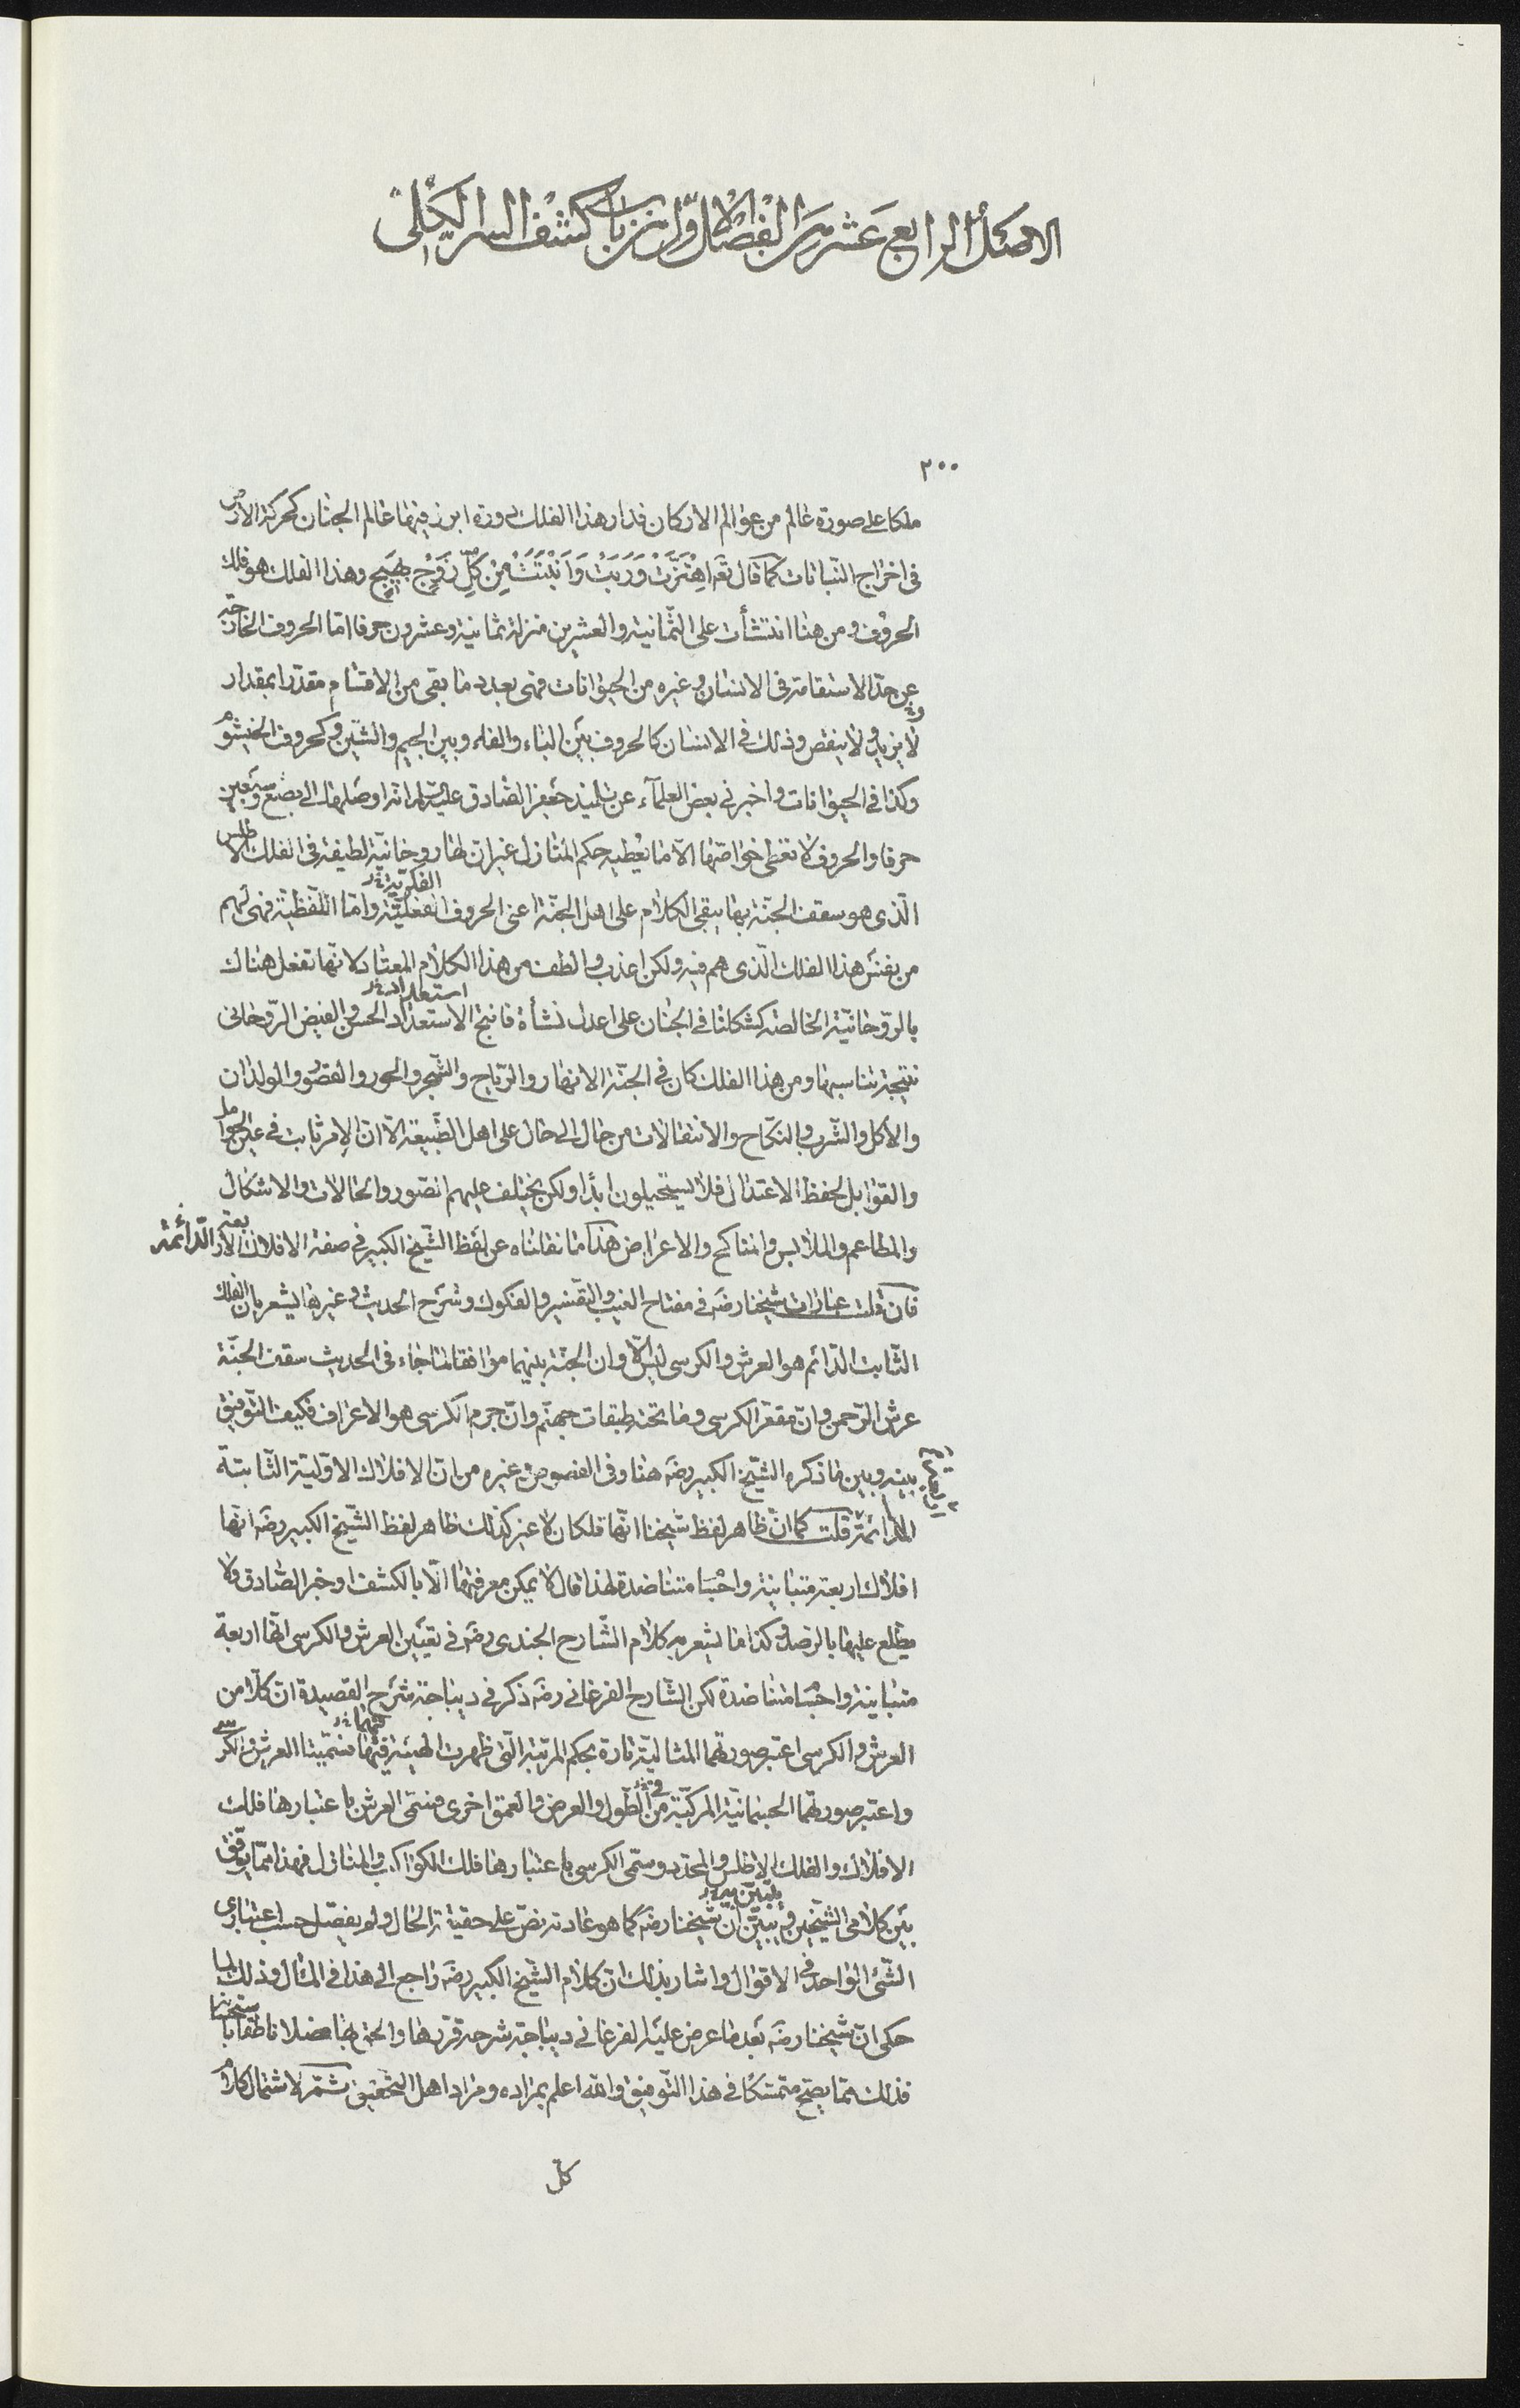 الاصل الرابع عشر من الفصل الاول من باب كشف السر الكلى
٢٠٠
ملكا على صورة عالم من عوالم الاركان فدار هذا الفلك دورة ابرز فيها عالم الجنان كحركة الارض
فى اخراج النباتات كما قال تعه اهْتَزَّتْ وَرَبَتْ وَاَنْبَتَتْ مِنْ كُلِّ زَوْجٍ بَهِيجٍ وهذا الفلك هو فلك
الحروف ومن هنا انتشأت على الثمانية والعشرين منزلة ثمانية وعشرون حرفا اما الحروف الخارجة
عن حدّ الاستقامة فى الانسان وغيره من الحيوانات فهى بعدد ما بقى من الاقسام مقدّرا بمقدار
لا يزيد ولا ينقص وذلك فى الانسان كالحروف بين الباء والفاء وبين الجيم والشين وكحروف الخيشوم
وكذا فى الحيوانات واخبرنى بعض العلمآء عن تلميذ جعفر الصادق عليه السلام انه اوصلها الى بضع وسبعين
حرفا والحروف لا تعطى خواصّها الّا ما يعطيه حكم المنازل غير ان لها روحانيّة لطيفة فى الفلك الاطلس
الّذى هو سقف الجنّة بها يبقى الكلام على اهل الجنّة اعنى الحروف الفعليّة وامّا اللّفظيّة فهى لهم
الفكريّة خ‌ر
من نفس هذا الفلك الّذى هم فيه ولكن اعذب والطف من هذا الكلام المعتاد لانّها تفعل هناك
بالروحانيّة الخالصة كشكلنا فى الجنان على اعدل نشأة فانتج الاستعداد الحسن والفيض الرّوحانى
استعداد خ‌ر
نتيجة تناسبها ومن هذا الفلك كان فى الجنّة الانهار والرّياح والشّجر والحور والقصور والولدان
والاكل والشّرب والنكاح والانتقالات من حال الى حال على اهل الطّبيعة الّا انّ الامر ثابت فى عين الحوامل
والقوابل لحفظ الاعتدال فلا يستحيلون ابدًا ولكن يختلف عليهم الصّور والحالات والاشكال
والمطاعم والملابس والمناكح والاعراض هذا ما نقلناه عن لفظ الشّيخ الكبير فى صفة الافلاك الاربعة الدّائمة
فان قلت عبارات شيخنا رضه فى مفتاح الغيب والتفسير والفكوك وشرح الحديث وغيرها يشعر بان الفلك
الثّابت الدّائم هو العرش والكرسى ليس الّا وان الجنّة بينهما موافقا لما جاء فى الحديث سقف الجنّة
عرش الرّحمن وانّ مقعّر الكرسى وما تحته طبقات جهنّم وانّ جرم الكرسى هو الاعراف فكيف التّوفيق
بينه وبين ما ذكره الشّيخ الكبير رضه هنا وفى الفصوص وغيره من انّ الافلاك الاوّليّة الثّابتة
الدائمة قلت كما انّ ظاهر لفظ شيخنا انّها فلكان لا غير كذلك ظاهر لفظ الشّيخ الكبير رضه انّها
افلاك اربعة متباينة واجسام متناضدة لهذا قال لا يمكن معرفتها الّا بالكشف او خبر الصّادق ولا
يطّلع عليها بالرصد وكذا ما يشعر به كلام الشّارح الجندى رضه فى تعيين العرش والكرسى انّها اربعة
متباينة واجسام متناضدة لكن الشّارح الفرغانى رضه ذكر فى ديباجة شرح القصيدة ان كلّا من
العرش والكرسى اعتبر صورتهما المثاليّة تارة بحكم المرتبة الّتى ظهرت الهيئة فيها فسمّيتا العرش والكرسى
فيهما خ‌ر
واعتبر صورتهما الجسمانيّة المركّبة من الطّول والعرض والعمق اخرى فسمّى العرش باعتبارها فلك
الافلاك والفلك الاطلس والمحدّد وسمّى الكرسى باعتبارها فلك الكواكب والمنازل فهذا ممّا يوفّق
بين كلامى الشّيخين ويبيّن انّ شيخنا رضه كما هو عادته نصّ على حقيقة الحال ولم يفصّل حسب اعتبارى
الشّئ الواحد فى الاقوال واشار بذلك انّ كلام الشّيخ الكبير رضه راجع الى هذا فى المثال وذلك لما
حكى انّ شيخنا رضه بعد ما عرض عليه الفرغانى ديباجة شرحه قرّرها والحق بها فصلا ناطقا باستحسانها
فذلك ممّا يصحّ متمسّكا فى هذا التّوفيق والله اعلم بمراده ومراد اهل التّحقيق ثمّ لاشتمال كلام
كلّ